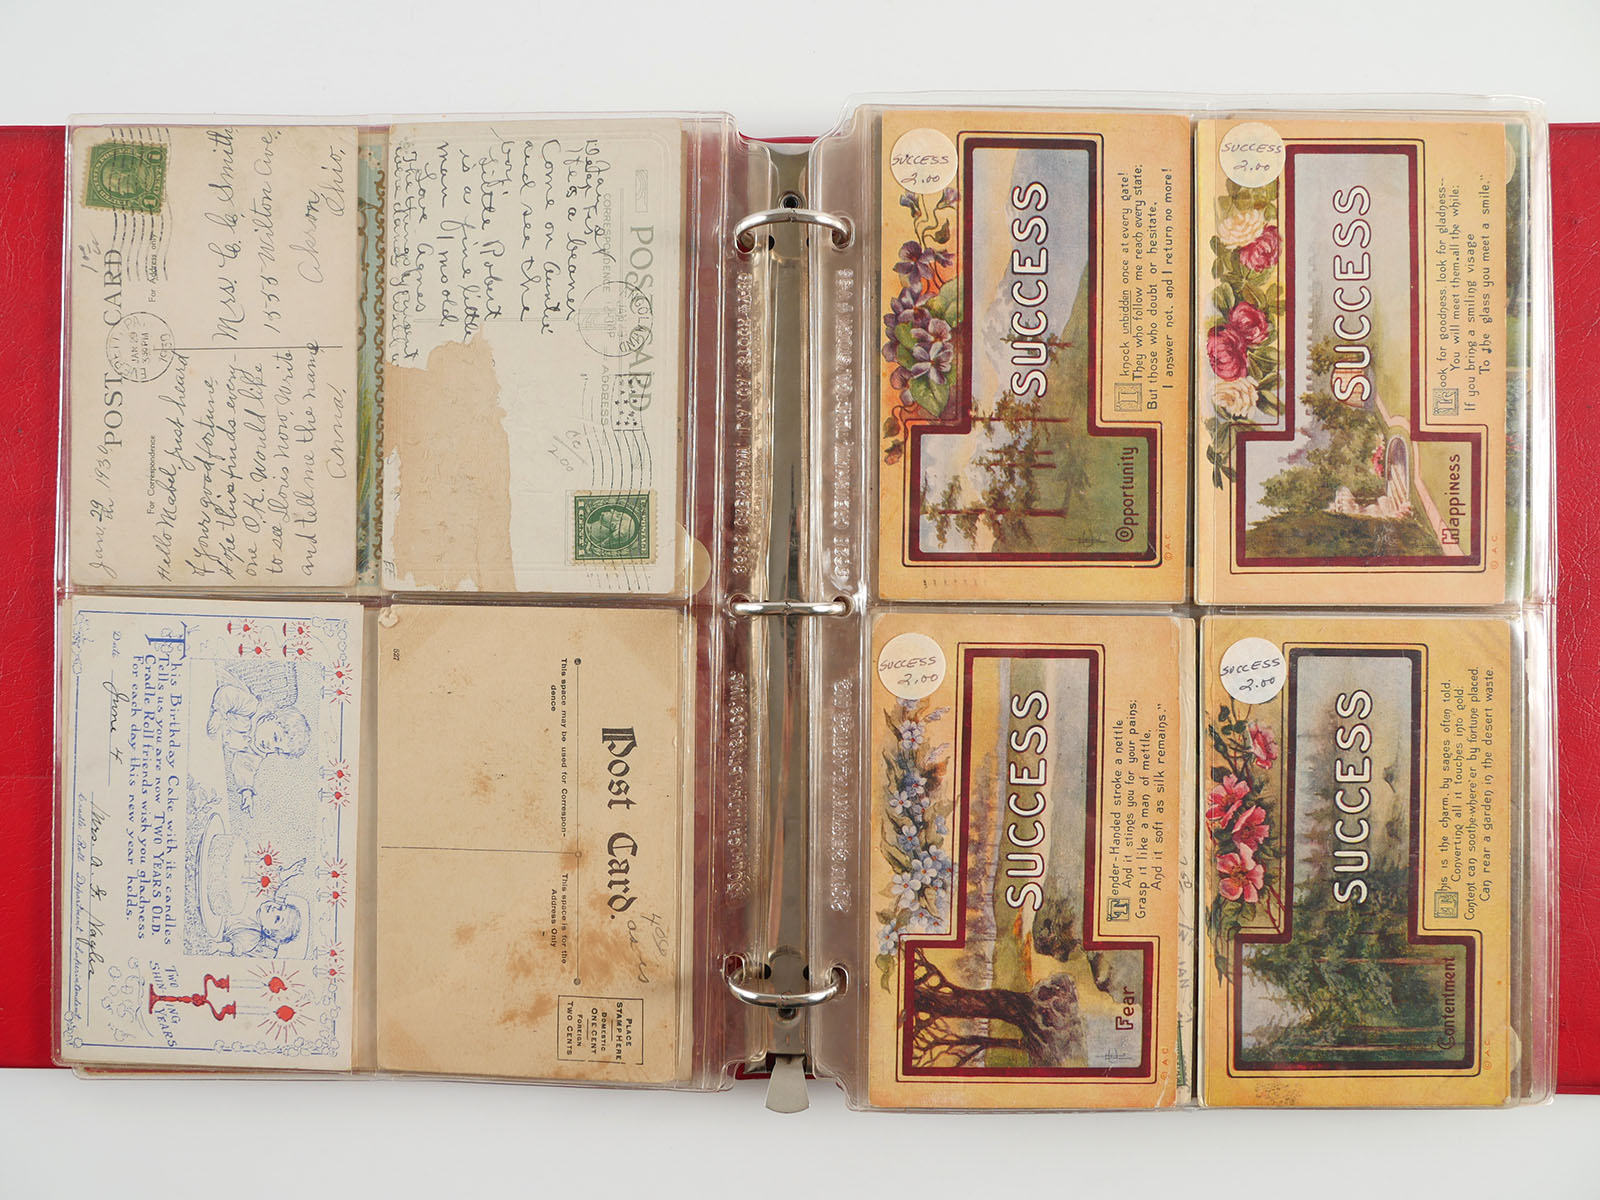 POST CARD
For Correspondence
For Address only
JAN 29
3 30 PM
1930
Jan. 29 the 1930
Hello Mabel, Just heard
of your good fortune
Hope this finds every-
one O.K. Would like
to see Doris now. Write
and tell me the name
Anna
Mrs. C. C. Smith
1555 Wilton Ave.
Akron,
Ohio.
POST CARD
CORRESPONDENCE
ADDRESS
He's a beaner
Come on Auntie
and see the
boy.
Little Robert
is a fine little
man 1 mo. old.
Love Agnes
1.00
1 CENT 1
This Birthday Cake with its candles
Tells us you are now TWO YEARS OLD.
Cradle Roll friends wish you gladness
For each day this new year holds.
Date June 4
Cradle Roll Department Superintendent
TWO
SHINING
YEARS
527
This space may be used for Correspon-
dence
Post Card.
This space is for the
Address Only
PLACE
STAMP HERE
DOMESTIC
ONE CENT
FOREIGN
TWO CENTS
as is
SUCCESS
2.00
SUCCESS
I knock unbidden once at every gate!
They who follow me reach every state;
But those who doubt or hesitate,
I answer not, and I return no more!
Opportunity
© A.C.
SUCCESS
2.00
SUCCESS
Look for goodness, look for gladness--
You will meet them all the while;
If you bring a smiling visage
To the glass you meet a smile."
Happiness
© A.C.
SUCCESS
2.00
SUCCESS
Tender-Handed stroke a nettle
And it stings you for your pains;
Grasp it like a man of mettle,
And it soft as silk remains."
Fear
© A.C.
SUCCESS
2.00
SUCCESS
This is the charm, by sages often told,
Converting all it touches into gold:
Content can soothe where'er by fortune placed
Can rear a garden in the desert waste.
Contentment
© A.C.